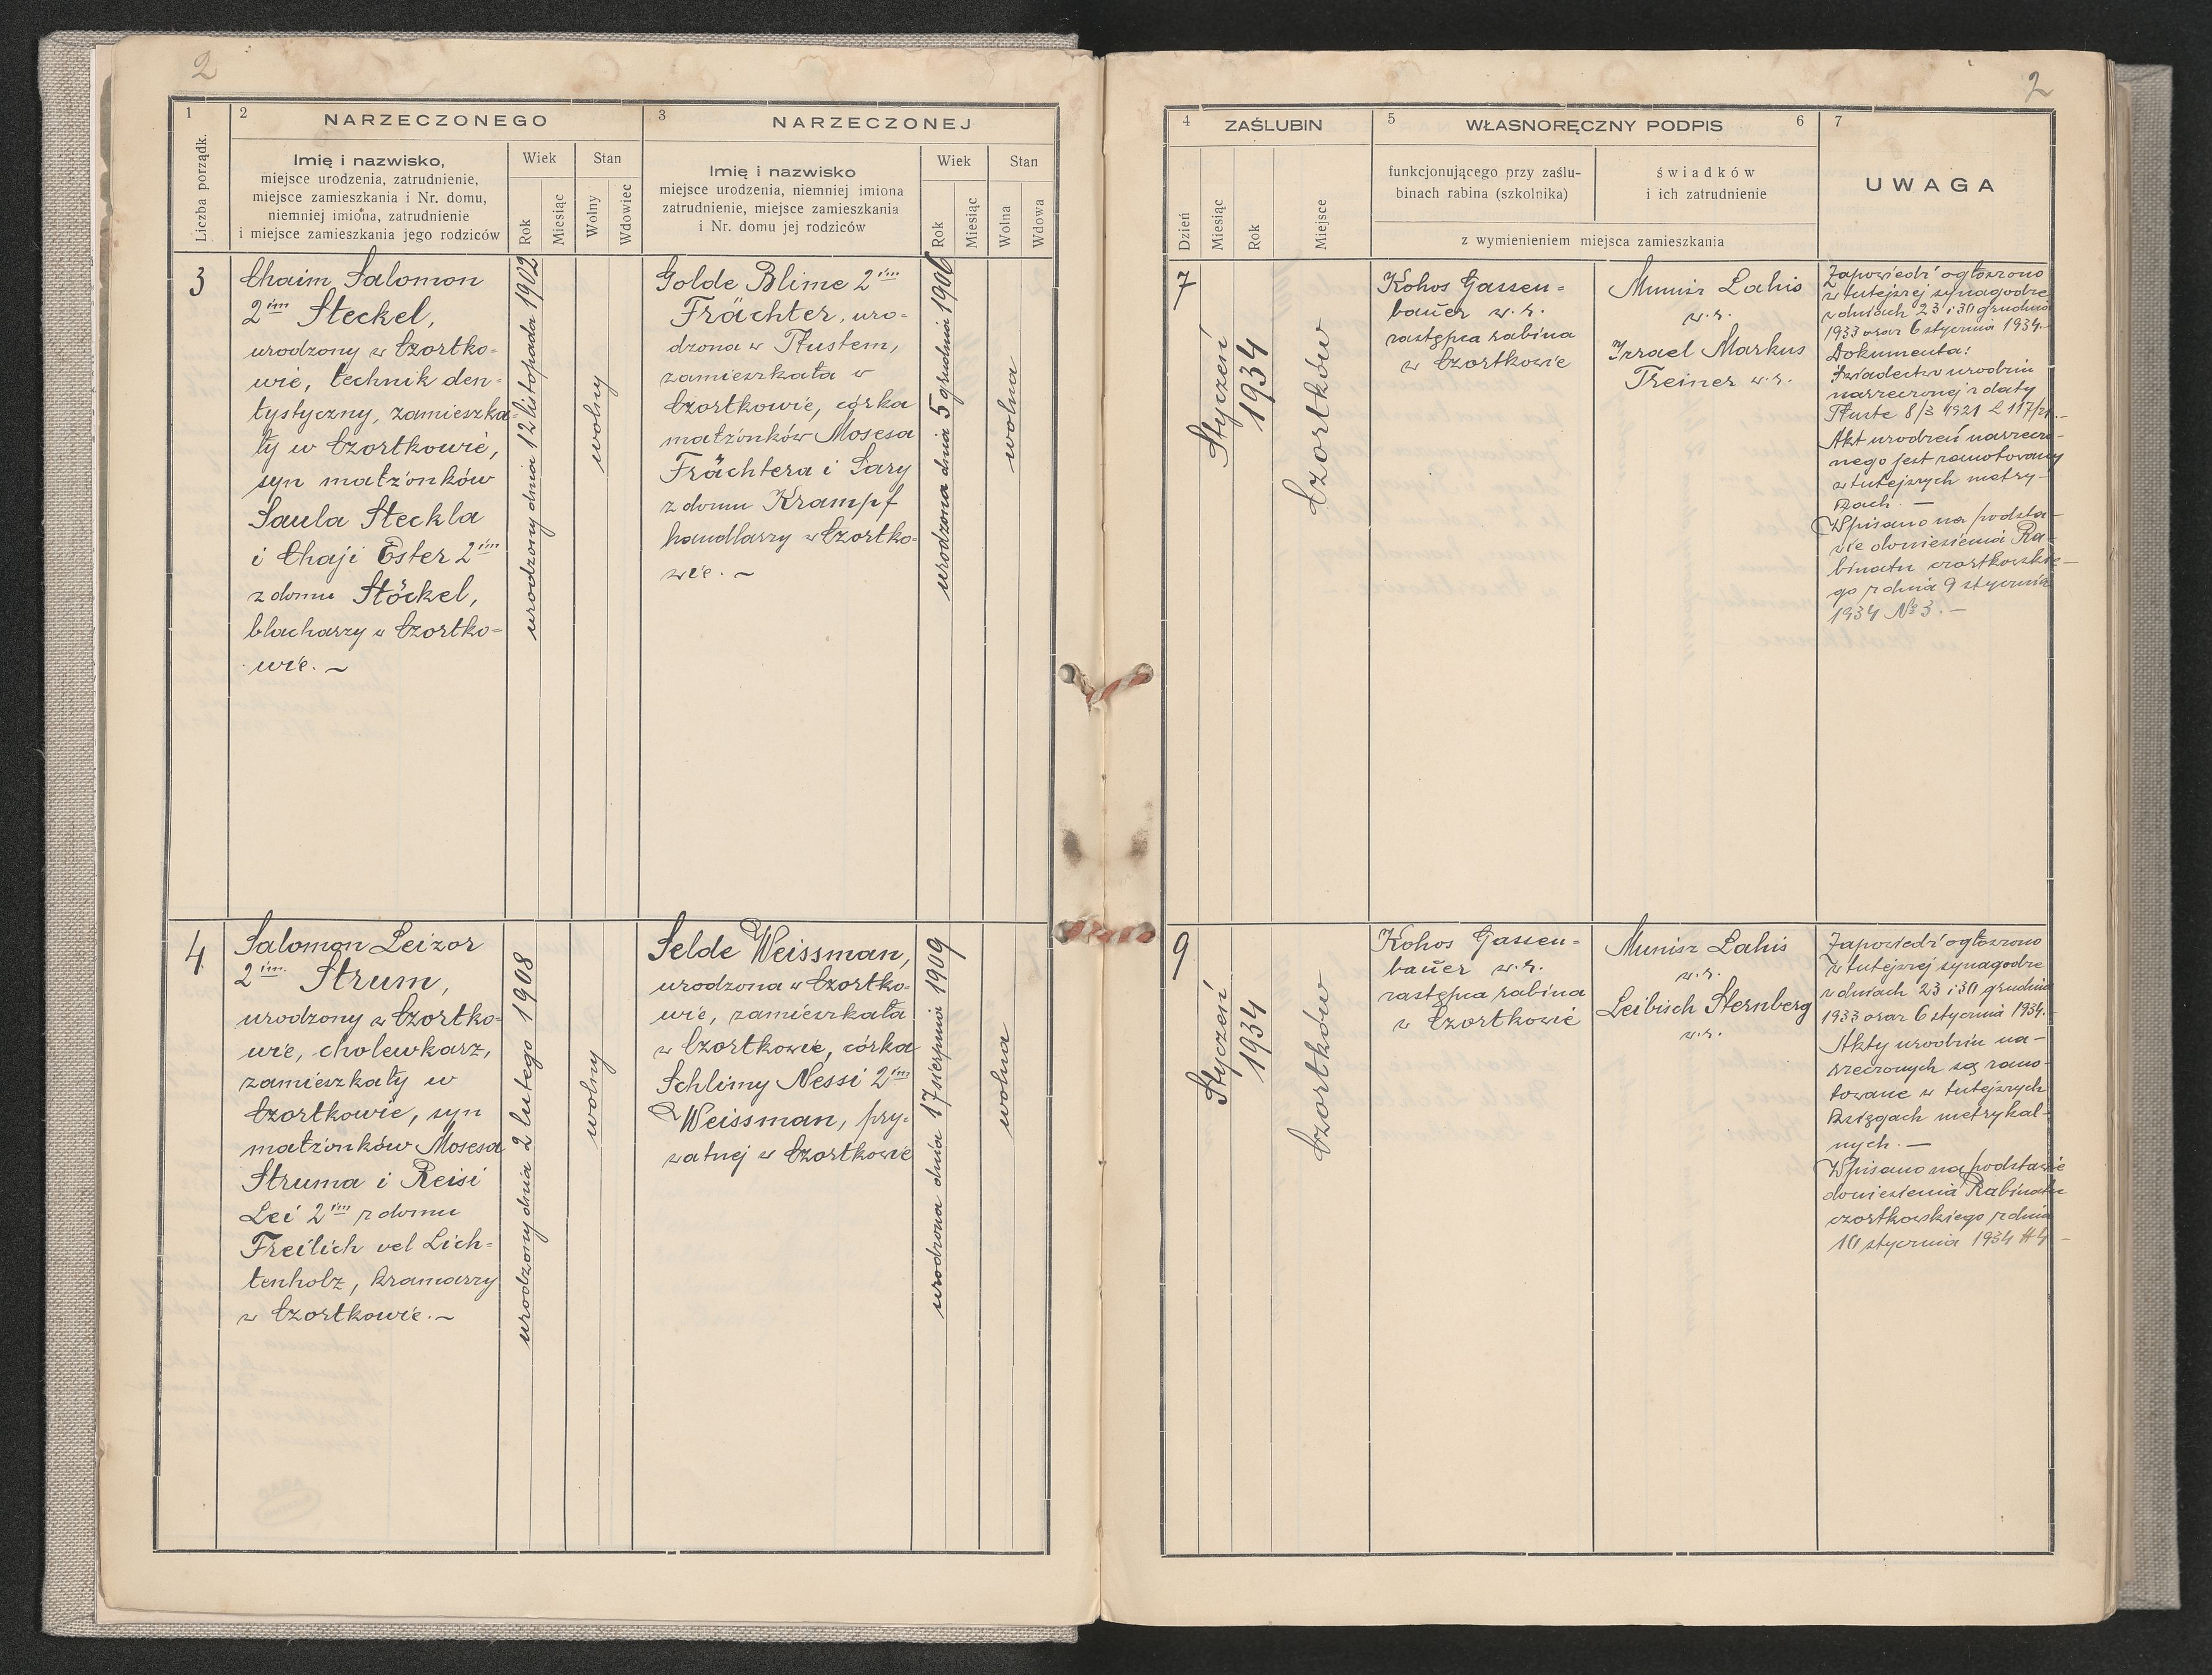 2
1
Liczba porządk.
2
NARZECZONEGO
Imię i nazwisko,
miejsce urodzenia, zatrudnienie,
miejsce zamieszkania i Nr. domu,
niemniej imiona, zatrudnienie
i miejsce zamieszkania jego rodziców
Wiek
Rok
Miesiąc
Stan
Wolny
Wdowiec
3
NARZECZONEJ
Imię i nazwisko
miejsce urodzenia, niemniej imiona
zatrudnienie, miejsce zamieszkania
i Nr. domu jej rodziców
Wiek
Rok
Miesiąc
Stan
Wolna
Wdowa
3
Chaim Salomon
2im Steckel,
urodzony w Czortko-
wie, technik den-
tystyczny, zamieszka-
ły w Czortkowie,
syn małżonków
Saula Steckla
i Chaji Ester 2im
z domu Stöckel,
blacharzy w Czortko-
wie. ~
urodzony dnia 12 listopada 1902
wolny
Golde Blime 2im
Frächter, uro-
dzona w Tłustem,
zamieszkała w
Czortkowie, córka
małżonków Mosesa
Frächtera i Sary
z domu Krampf
handlarzy w Czortko-
wie. ~
urodzona dnia 5 grudnia 1906
wolna
4
Salomon Leizor
2im Strum,
urodzony w Czortko-
wie, cholewkarz,
zamieszkały w
Czortkowie, syn
małżonków Mosesa
Struma i Reisi
Lei 2im z domu
Freilich vel Lich-
tenholz, kramarzy
w Czortkowie. ~
urodzony dnia 2 lutego 1908
wolny
Selde Weissman,
urodzona w Czortko-
wie, zamieszkała
w Czortkowie, córka
Schlimy Nessi 2im
Weissman, pry-
watnej w Czortkowie
urodzona dnia 17 sierpnia 1909
wolna
2
4
ZAŚLUBIN
Dzień
Miesiąc
Rok
Miejsce
5
WŁASNORĘCZNY PODPIS
6
funkcjonującego przy zaślu-
binach rabina (szkolnika)
świadków
i ich zatrudnienie
z wymienieniem miejsca zamieszkania
7
UWAGA
7
Styczeń
1934
Czortków
Kohos Gassen-
bauer w.r.
zastępca rabina
w Czortkowie
Munisz Lahis
w.r.
Izrael Markus
Treiner w.r.
Zapowiedzi ogłoszono
w tutejszej synagodze
w dniach 23 i 30 grudnia
1933 oraz 6 stycznia 1934.-
Dokumenta:
Świadectwo urodzin
narzeczonej z daty
Tłuste 8/3 1921 L 117/21.-
Akt urodzeń narzeczo-
nego jest zanotowany
w tutejszych metry-
kach. —
Wpisano na podsta-
wie doniesienia Ra-
binatu czortkowskie-
go z dnia 9 stycznia
1934 № 3. —
9
Styczeń
1934
Czortków
Kohos Gassen-
bauer w.r.
zastępca rabina
w Czortkowie
Munisz Lahis
w.r.
Leibisch Sternberg
w.r.
Zapowiedzi ogłoszono
w tutejszej synagodze
w dniach 23 i 30 grudnia
1933 oraz 6 stycznia 1934.-
Akty urodzin na-
rzeczonych są zano-
towane w tutejszych
księgach metrykal-
nych. —
Wpisano na podstawie
doniesienia Rabinatu
czortkowskiego z dnia
10 stycznia 1934 # 4 —